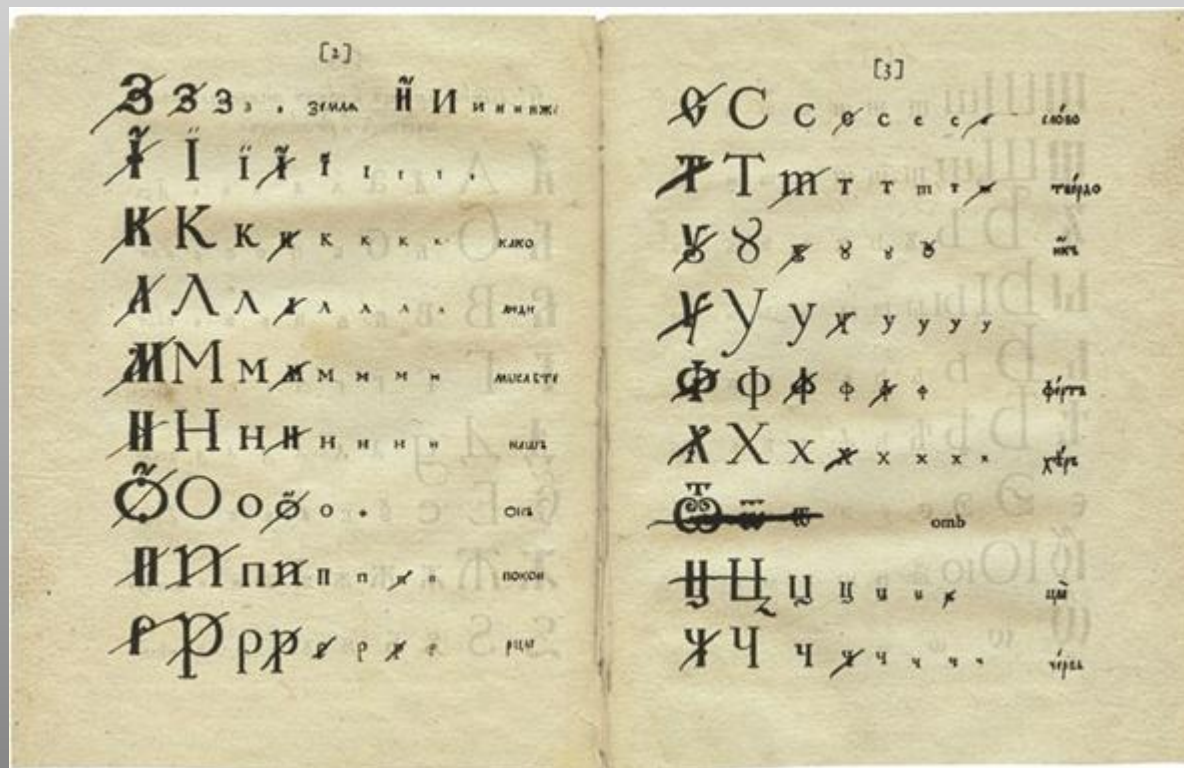 [2]
З З З з . земля Й И и и и иже
Ї І ї ї ї ї ı ı ı ı
К К к к к к к к како
Л Л л л л л л л люди
М М м м м м м м мыслѣте
Н Н н н н н н н нашъ
О О о о о . онъ
П П п п п п п п покои
Р Р р р р р р р рцы
[3]
С С с с с с с с слово
Т Т т т т т т т твердо
Ꙋ Ꙋ ꙋ ꙋ ꙋ ꙋ икъ
У У у у у у у у
Ф Ф ф ф ф ф фертъ
Х Х х х х х х х хѣръ
Ѿ ѿ ѿ отъ
Ц Ц ц ц ц ц ц цы
Ч Ч ч ч ч ч ч ч червь